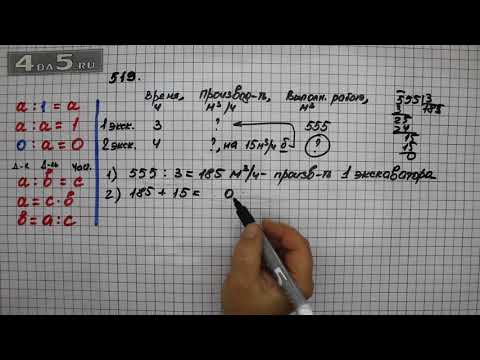 4DA5.RU
519.
Время, Производ-ть, Выполн. работа,
ч м³/ч м³
1 экс. 3 ? 555
2 экс. 4 ?, на 15 м³/ч б ?
1) 555 : 3 = 185 м³/ч - произв-ть 1 экскаватора
2) 185 + 15 = 0
555 3
3 185
25
24
15
15
0
a : 1 = a
a : a = 1
0 : a = 0
Д-е Д-ль Част.
a : b = c
a = c · b
b = a : c